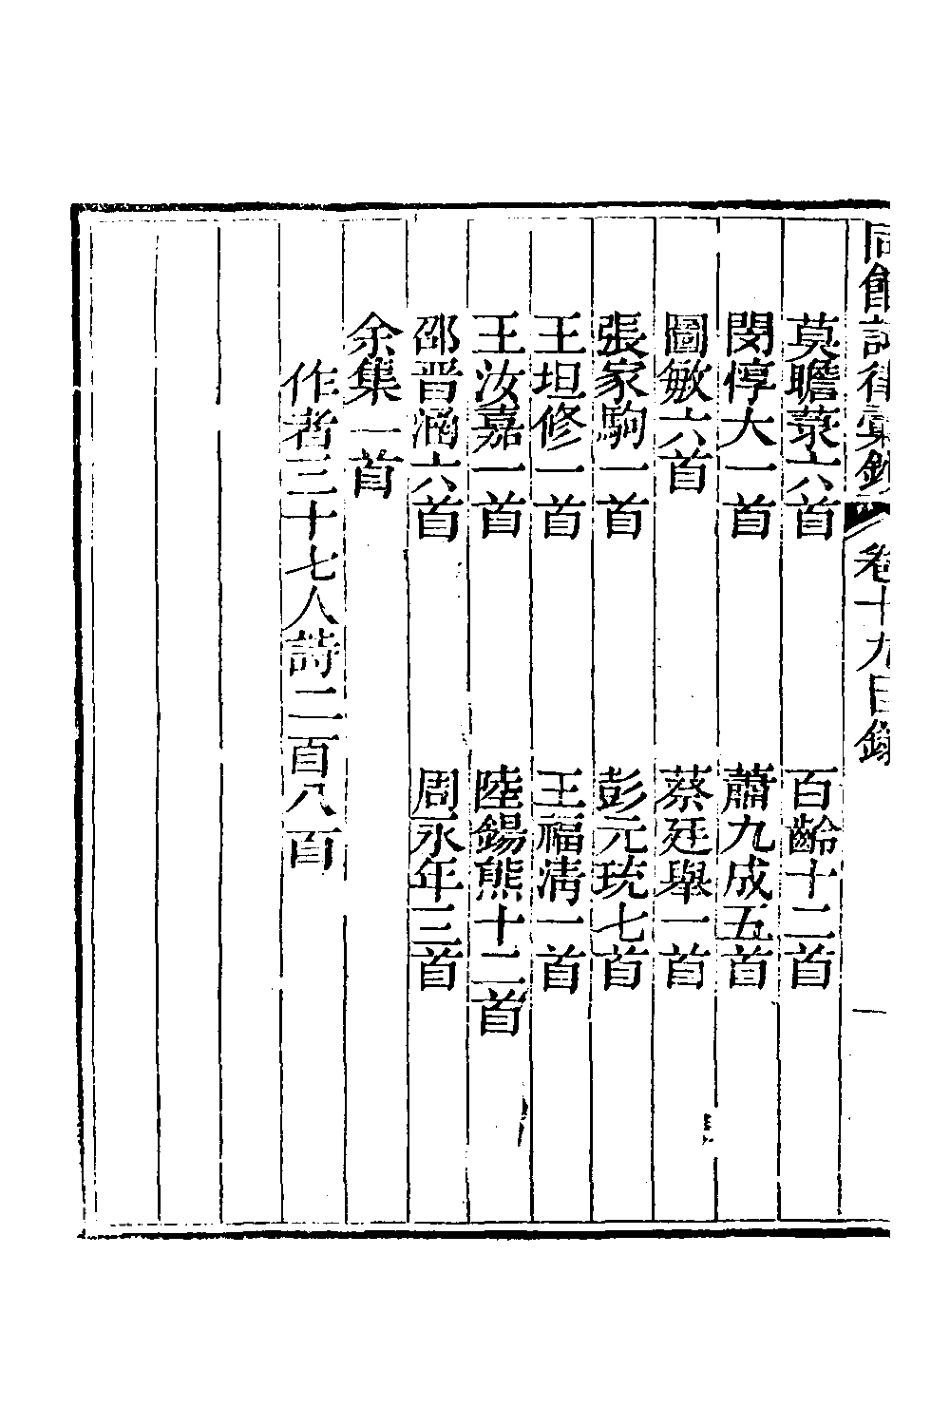 同館詩律彙鈔 卷十九目錄 一
莫瞻菉六首 百齡十二首
閔惇大一首 蕭九成五首
圖敏六首 蔡廷舉一首
張家駒一首 彭元珫七首
王坦修一首 王福清一首
王汝嘉一首 陸錫熊十二首
邵晋涵六首 周永年三首
余集一首
作者三十七人詩二百八首